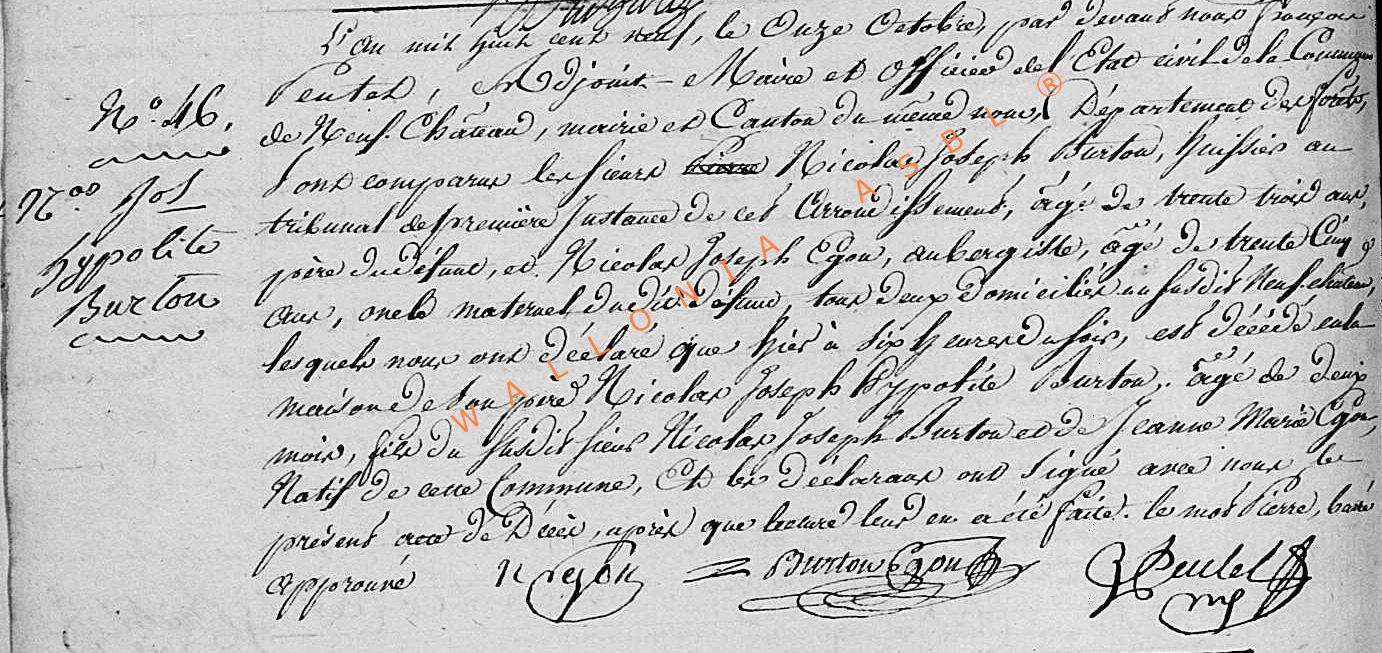 L'an mil huit cent neuf, le Onze Octobre, par devant nous françois
Adjoint-Maire et Officier de l'Etat civil de la Commune
de Neuf-Château, mairie et Canton du même nom, Département des forêts,
Sont comparus les sieurs Pierre Nicolas Joseph Burton, huissier au
tribunal de première Instance de cet Arrondissement, âgé de trente trois ans,
père du défunt, et Nicolas Joseph Egon, aubergiste, âgé de trente Cinq
ans, oncle maternel du dit défunt, tous deux domiciliés au susdit Neufchâteau,
lesquels nous ont déclaré que hier à six heures du soir, est décédé en la
maison de son père Nicolas Joseph hypolite Burton, âgé de deux
mois, fils du susdit sieur Nicolas Joseph Burton et de Jeanne Marie Egon,
Natif de cette Commune, Et les déclarans ont signé avec nous le
présent acte de Décès, après que lecture leur en a été faite. le mot Pierre, barré
approuvé
N.o 46.
N.as Jos
hypolite
Burton
N egon
Burton Egon
WALLONIA ASBL ®